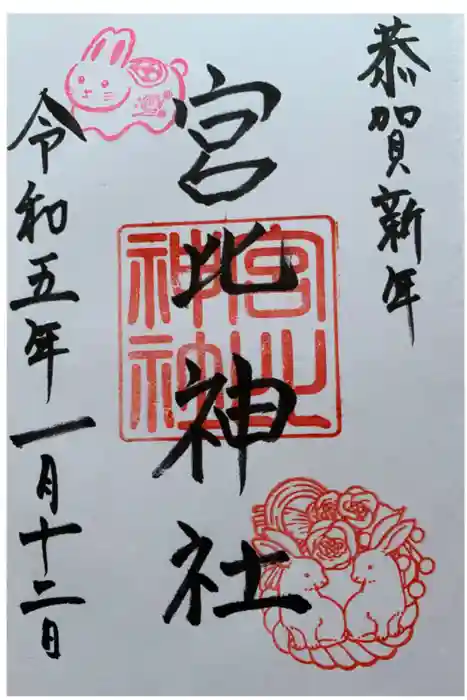 恭賀新年
宮比神社
宮比
神社
令和五年一月十二日